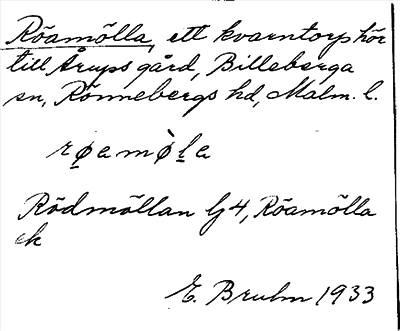 Röamölla, ett kvarntorp hör
till Årups gård, Billeberga
sn, Rönnebergs hd, Malm. l.
røamø̀la
Rödmöllan Gj4, Röamölla
ek
E. Bruhn 1933